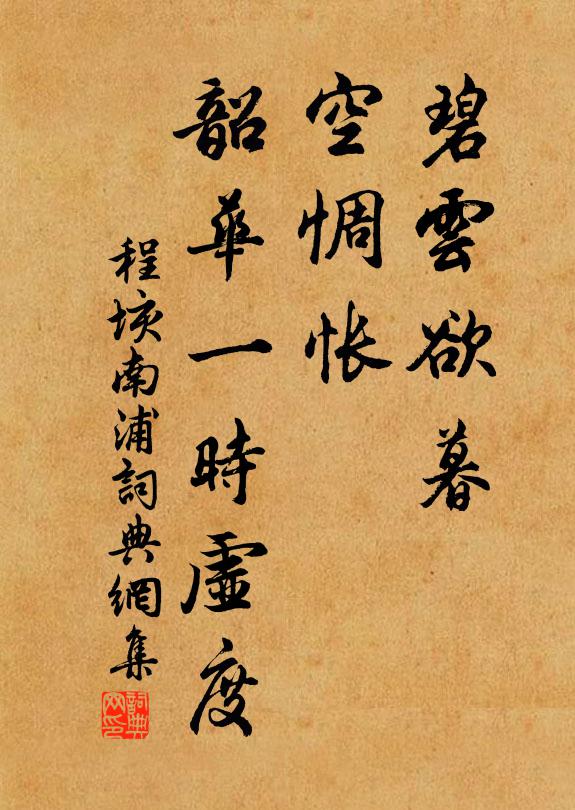 碧雲欲暮
空惆怅
韶華一時虛度
程垓南浦詞典網集
詞典網印